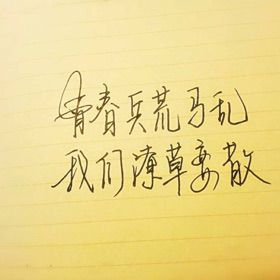 青春兵荒马乱
我们潦草离散